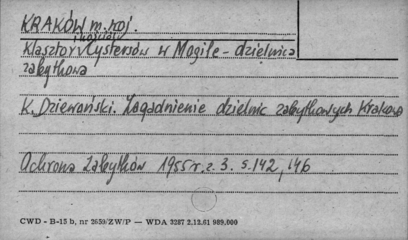 KRAKÓW m. woj.
Klasztor i kościół Cystersów w Mogile - dzielnica
zabytkowa
K. Dziewoński. Zagadnienie dzielnic zabytkowych Krakowa
Ochrona Zabytków 1955 r. z. 3. s. 142, 146
CWD - B-15 b, nr 2659/ZW/P — WDA 3287 2.12.61 989,000